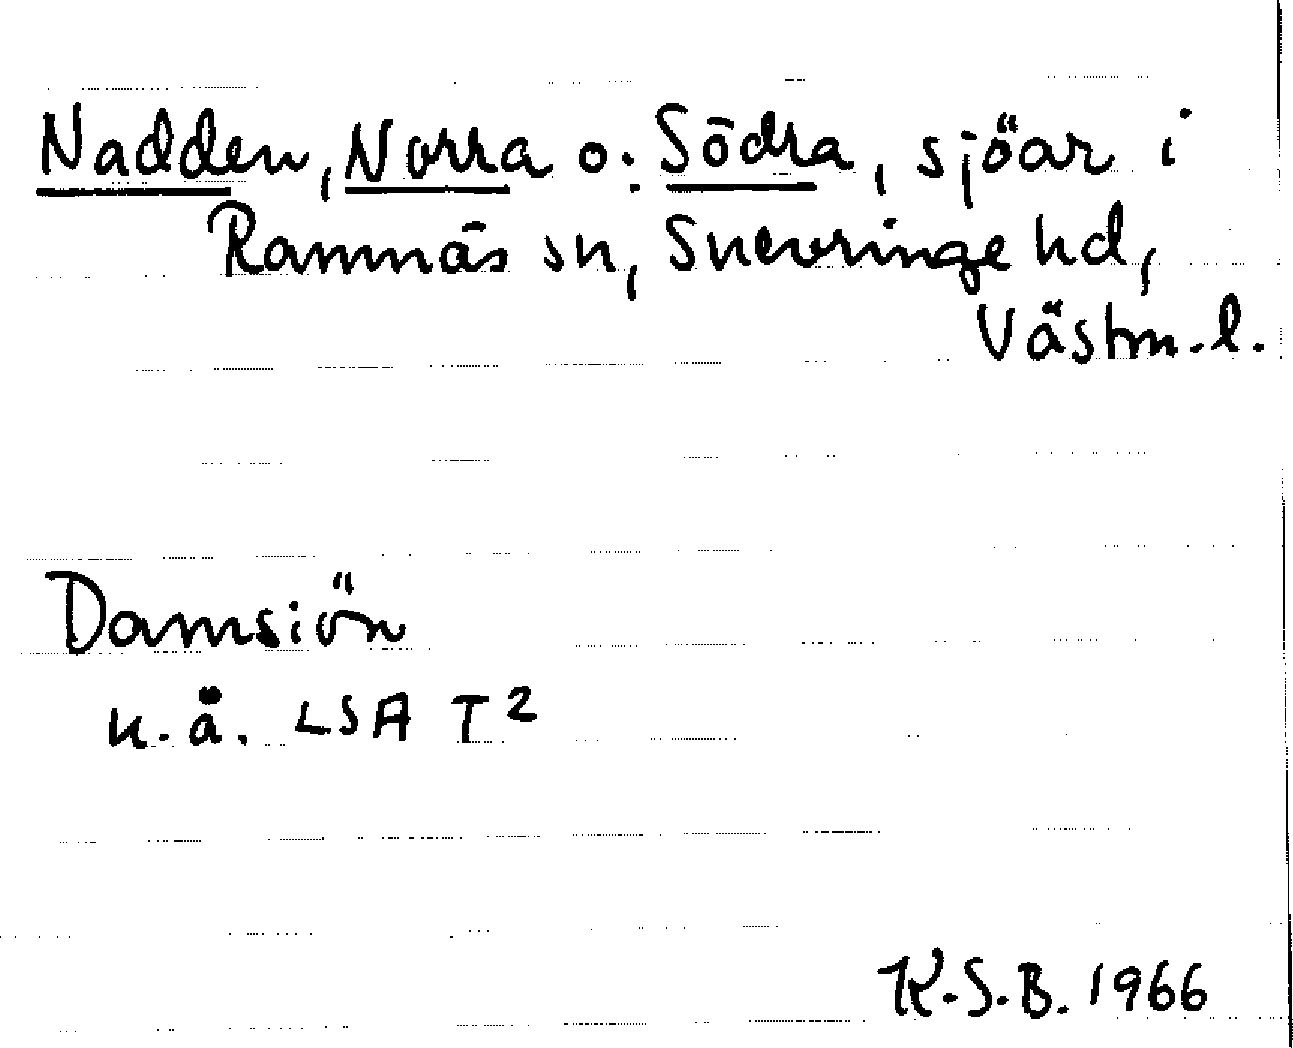 Nadden, Norra o. Södra, sjöar i
Ramnäs sn, Snevringe hd,
Västm. l.
Damsiön
u. å. LSA T2
K.S.B. 1966